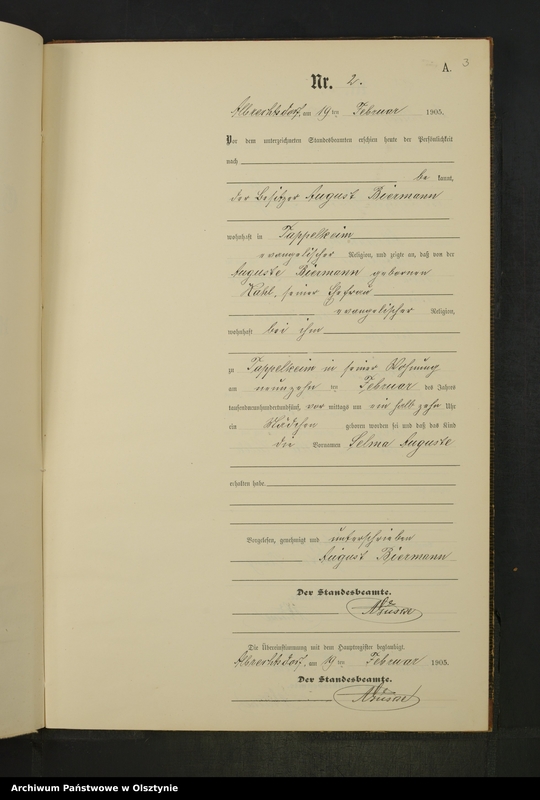 A. 3
Nr. 2.
Albrechtsdorf, am 19 ten Februar 1905.
Vor dem unterzeichneten Standesbeamten erschien heute der Persönlichkeit
nach
be kannt,
der Besitzer August Biermann
wohnhaft in Tappelkeim
evangelischer Religion, und zeigte an, daß von der
Auguste Biermann geborenen
Kahl, seiner Ehefrau
evangelischer Religion,
wohnhaft bei ihm
zu Tappelkeim in seiner Wohnung
am neunzehn ten Februar des Jahres
tausendneunhundertundfünf, vor mittags um ein halb zehn Uhr
ein Mädchen geboren worden sei und daß das Kind
die Vornamen Selma Auguste
erhalten habe.
Vorgelesen, genehmigt und unterschrieben
August Biermann
Der Standesbeamte.
Die Übereinstimmung mit dem Hauptregister beglaubigt.
Albrechtsdorf, am 19 ten Februar 1905.
Der Standesbeamte.
Archiwum Państwowe w Olsztynie